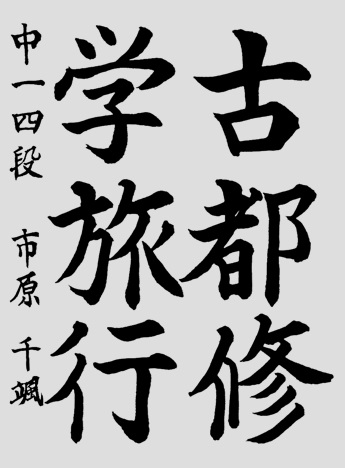 古都修
学旅行
中一四段 市原 千颯